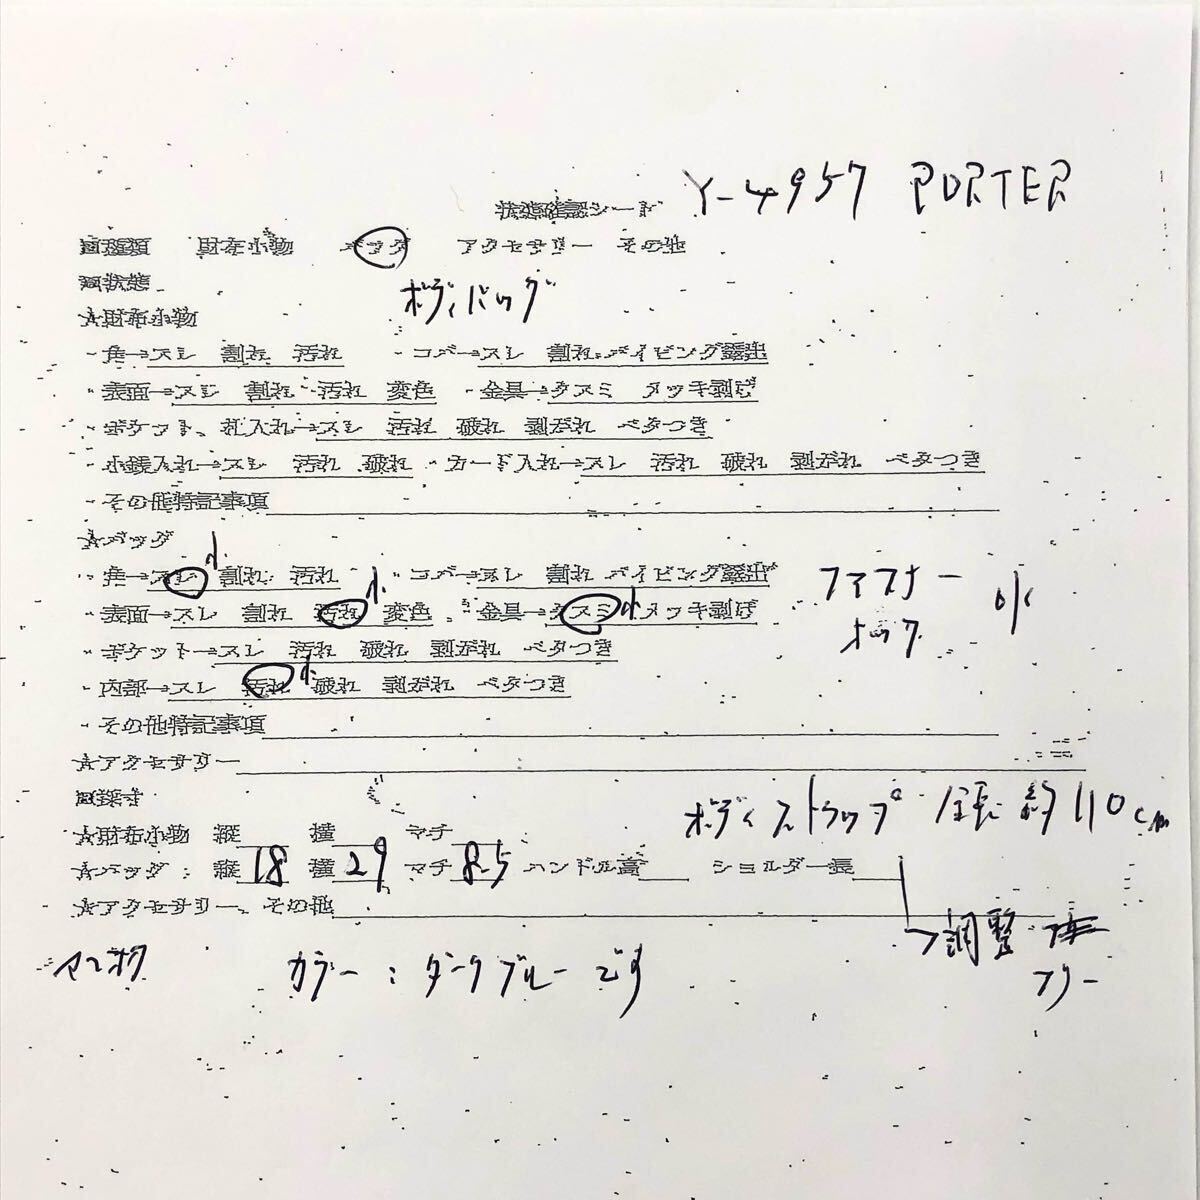 状態確認シート Y-4957 PORTER
■種類 財布小物 バッグ アクセサリー その他
■状態 ボディバッグ
★財布小物
・角→スレ 割れ 汚れ ・コバ→スレ 割れ パイピング露出
・表面→スレ 割れ 汚れ 変色 ・金具→クスミ メッキ剥げ
・ポケット、札入れ→スレ 汚れ 破れ 剥がれ ベタつき
・小銭入れ→スレ 汚れ 破れ ・カード入れ→スレ 汚れ 破れ 剥がれ ベタつき
・その他特記事項
★バッグ
・角→スレ 小 割れ 汚れ ・コバ→スレ 割れ パイピング露出 ファスナー
・表面→スレ 割れ 汚れ 小 変色 ・金具→クスミ 小 メッキ剥げ 小
・ポケット→スレ 汚れ 破れ 剥がれ ベタつき
・内部→スレ 汚れ 小 破れ 剥がれ ベタつき
・その他特記事項
★アクセサリー
■採寸 ボディストラップ 全長約110cm
★財布小物 縦 横 マチ
★バッグ：縦 18 横 29 マチ 8.5 ハンドル高 ショルダー長
★アクセサリー、その他 調整
フリー
カラー：ダークブルーです